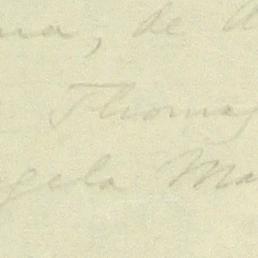 na, de
Thomas
ngela Ma